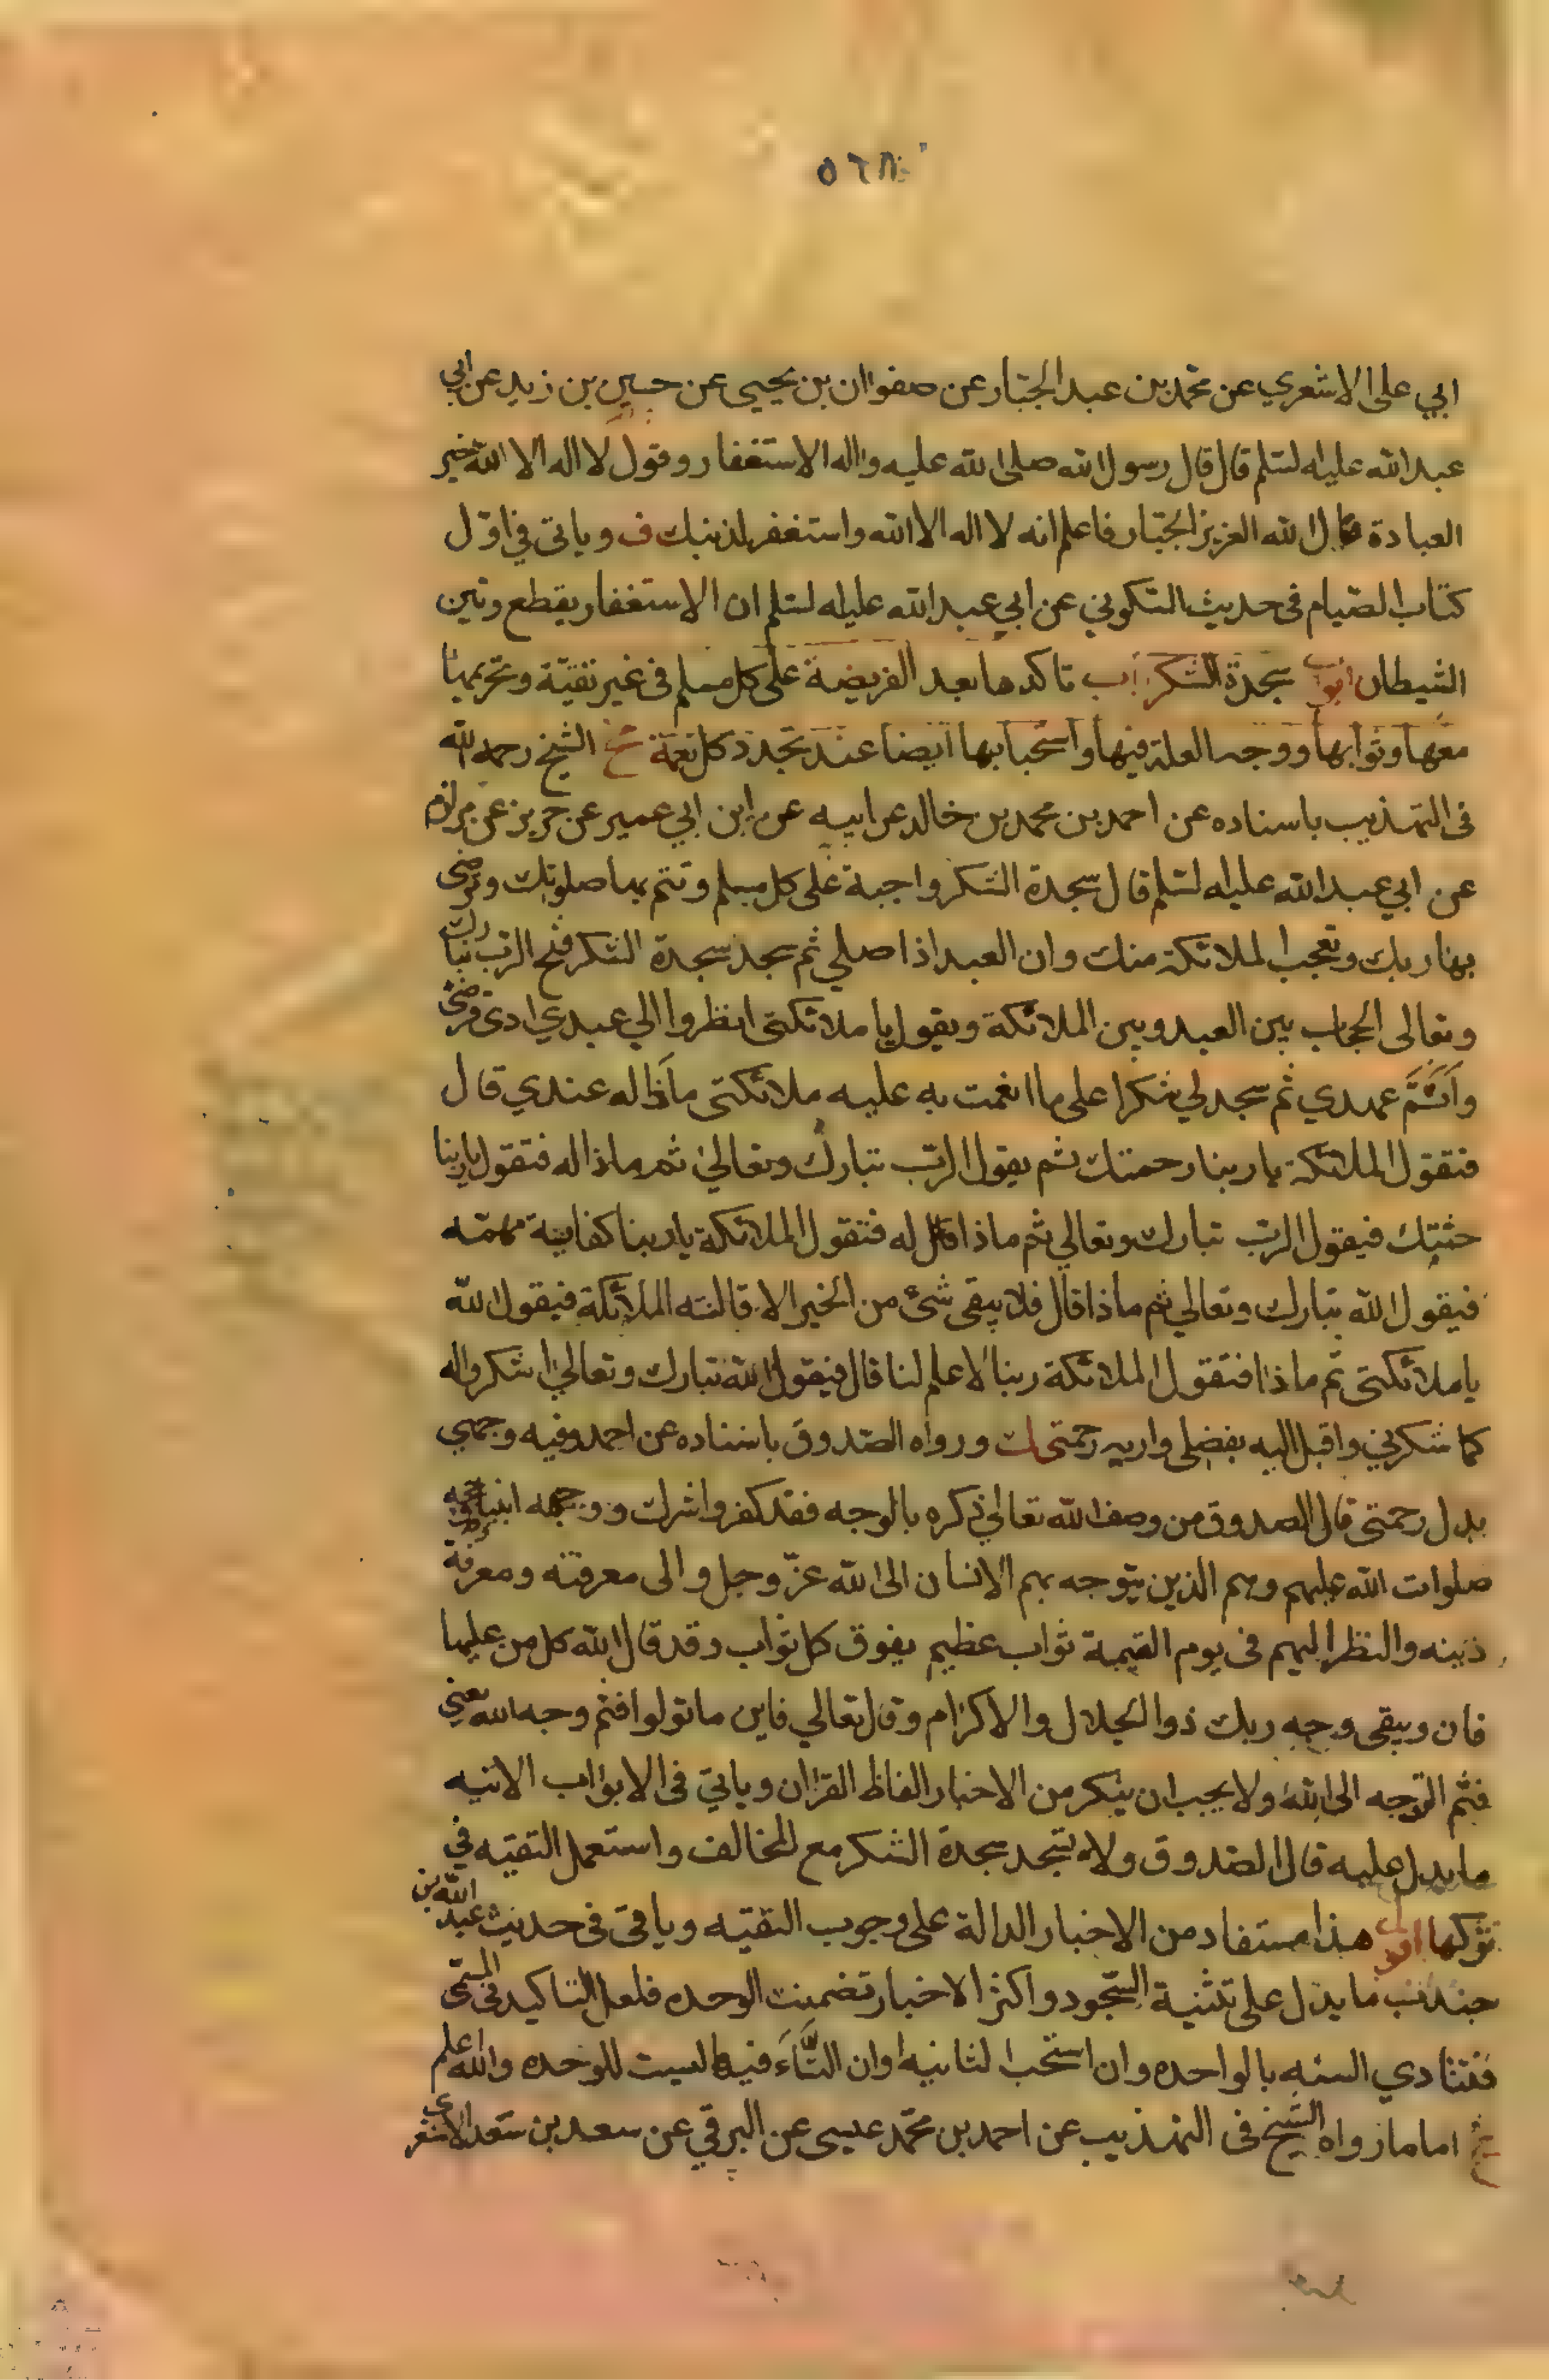 ٥٦٨
ابي على الاشعري عن محمد بن عبد الجبار عن صفوان بن يحيى عن حسين بن زيد عن ابي
عبد الله عليه السلم قال قال رسول الله صلى الله عليه واله الاستغفار وقول لا اله الا الله خير
العبادة قال الله العزيز الجبار فاعلم انه لا اله الا الله واستغفر لذنبك ف وياتى في اول
كتاب الصيام فى حديث السكوني عن ابي عبد الله عليه السلم ان الاستغفار يقطع وتين
الشيطان ابواب سجدة الشكر اب تاكدها بعد الفريضة على كل مسلم فى غير تقية وتحريمها
معها وثوابها ووجه العلة فيها واستحبابها ايضا عند تجدد كل نعمة الشيخ رحمه الله
فى التهذيب باسناده عن احمد بن محمد بن خالد عن ابيه عن ابن ابي عمير عن حريز عن مرازم
عن ابي عبد الله عليه السلم قال سجدة الشكر واجبة على كل مسلم وتتم بها صلوتك وترضى
بها ربك وتعجب الملائكة منك وان العبد اذا صلى ثم سجد سجدة الشكر فتح الرب تبارك
وتعالى الحجاب بين العبد وبين الملائكة ويقول يا ملائكتى انظروا الي عبدي ادى فرضى
واتم عهدي ثم سجد لي شكرا على ما انعمت به عليه ملائكتى ماذا له عندي قال
فتقول الملائكة يا ربنا رحمتك ثم يقول الرب تبارك وتعالى ثم ماذا له فتقول يا ربنا
جنتك فيقول الرب تبارك وتعالي ثم ماذا قال له فتقول الملائكة يا ربنا كفاية مهمه
فيقول الله تبارك وتعالي ثم ماذا قال فلا يبقى شئ من الخير الا قالته الملائكة فيقول الله
يا ملائكتى ثم ماذا فتقول الملائكة ربنا لا علم لنا قال فيقول الله تبارك وتعالي اشكر واله
كما شكرني واقبل اليه بفضلي واريه رحمتى ورواه الصدوق باسناده عن احمد وفيه وجهي
بدل رحمتى قال الصدوق من وصف الله تعالي ذكره بالوجه فقد كفر واشرك ووجهه انبيائه وحججه
صلوات الله عليهم وهم الذين يتوجه بهم الانسان الى الله عز وجل والى معرفته ومعرفة
دينه والنظر اليهم فى يوم القيمة ثواب عظيم يفوق كل ثواب وقد قال الله كل من عليها
فان ويبقى وجه ربك ذو الجلال والاكرام وقال تعالي فاين ما تولوا فثم وجه الله يعني
فثم التوجه الى الله ولا يجب ان ينكر من الاخبار الفاظ القران وياتي فى الابواب الاتيه
ما يدل عليه قال الصدوق ولا تسجد سجدة الشكر مع المخالف واستعمل التقيه في
تركها اقول هذا مستفاد من الاخبار الدالة على وجوب التقيه وياتى فى حديث عبد الله بن
جندب ما يدل على تثنية السجود واكثر الاخبار تضمنت الوحده فلعل التاكيد في المسمى
فتتادي السنه بالواحده وان استحب الثانيه او ان التاء فيها ليست للوحده والله اعلم
اما ما رواه الشيخ فى التهذيب عن احمد بن محمد عيسى عن البرقي عن سعد بن سعد الاشعرى